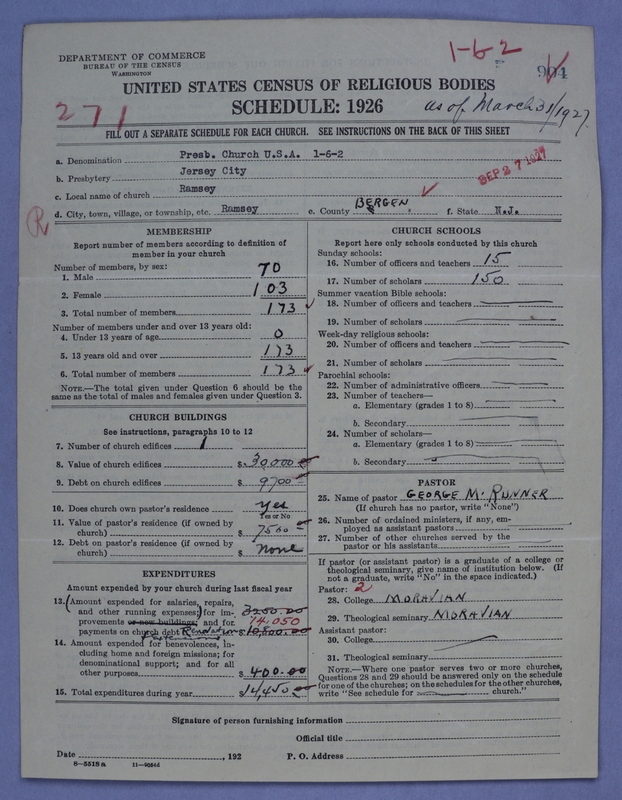 DEPARTMENT OF COMMERCE
BUREAU OF THE CENSUS
WASHINGTON
1-6-2
904
UNITED STATES CENSUS OF RELIGIOUS BODIES
271
SCHEDULE: 1926
as of March 31/1927.
FILL OUT A SEPARATE SCHEDULE FOR EACH CHURCH. SEE INSTRUCTIONS ON THE BACK OF THIS SHEET
a. Denomination Presb. Church U.S.A. 1-6-2
b. Presbytery Jersey City
SEP 27 1927
c. Local name of church Ramsey
R
d. City, town, village, or township, etc. Ramsey e. County BERGEN f. State N.J.
MEMBERSHIP
Report number of members according to definition of
member in your church
Number of members, by sex:
1. Male 70
2. Female 103
3. Total number of members 173
Number of members under and over 13 years old:
4. Under 13 years of age 0
5. 13 years old and over 173
6. Total number of members 173
NOTE.—The total given under Question 6 should be
same as the total of males and females given under Question 3.
CHURCH BUILDINGS
See instructions, paragraphs 10 to 12
7. Number of church edifices 1
8. Value of church edifices $30,000
9. Debt on church edifices $9700
10. Does church own pastor's residence yes
Yes or No
11. Value of pastor's residence (if owned by
church) $7500
12. Debt on pastor's residence (if owned by
church) $None
EXPENDITURES
Amount expended by your church during last fiscal year
13. (Amount expended for salaries, repairs,
and other running expenses; for im- 3250.00
provements or new buildings; and for 14,050
payments on church debt $10,800.00
14. Amount expended for benevolences, in-
cluding home and foreign missions; for
denominational support; and for all
other purposes $400.00
15. Total expenditures during year $14,450
CHURCH SCHOOLS
Report here only schools conducted by this church
Sunday schools:
16. Number of officers and teachers 15
17. Number of scholars 150
Summer vacation Bible schools:
18. Number of officers and teachers
19. Number of scholars
Week-day religious schools:
20. Number of officers and teachers
21. Number of scholars
Parochial schools:
22. Number of administrative officers
23. Number of teachers—
a. Elementary (grades 1 to 8)
b. Secondary
24. Number of scholars—
a. Elementary (grades 1 to 8)
b. Secondary
PASTOR
25. Name of pastor GEORGE M. RUNNER
(If church has no pastor, write "None")
26. Number of ordained ministers, if any, em-
ployed as assistant pastors
27. Number of other churches served by the
pastor or his assistants
If pastor (or assistant pastor) is a graduate of a college or
theological seminary, give name of institution below. (If
not a graduate, write "No" in the space indicated.)
Pastor: 2
28. College MORAVIAN
29. Theological seminary MORAVIAN
Assistant pastor:
30. College
31. Theological seminary
NOTE.—Where one pastor serves two or more churches,
Questions 28 and 29 should be answered only on the schedule
for one of the churches; on the schedules for the other churches,
write "See schedule for church."
Signature of person furnishing information
Official title
Date , 192 P. O. Address
8—5518 a